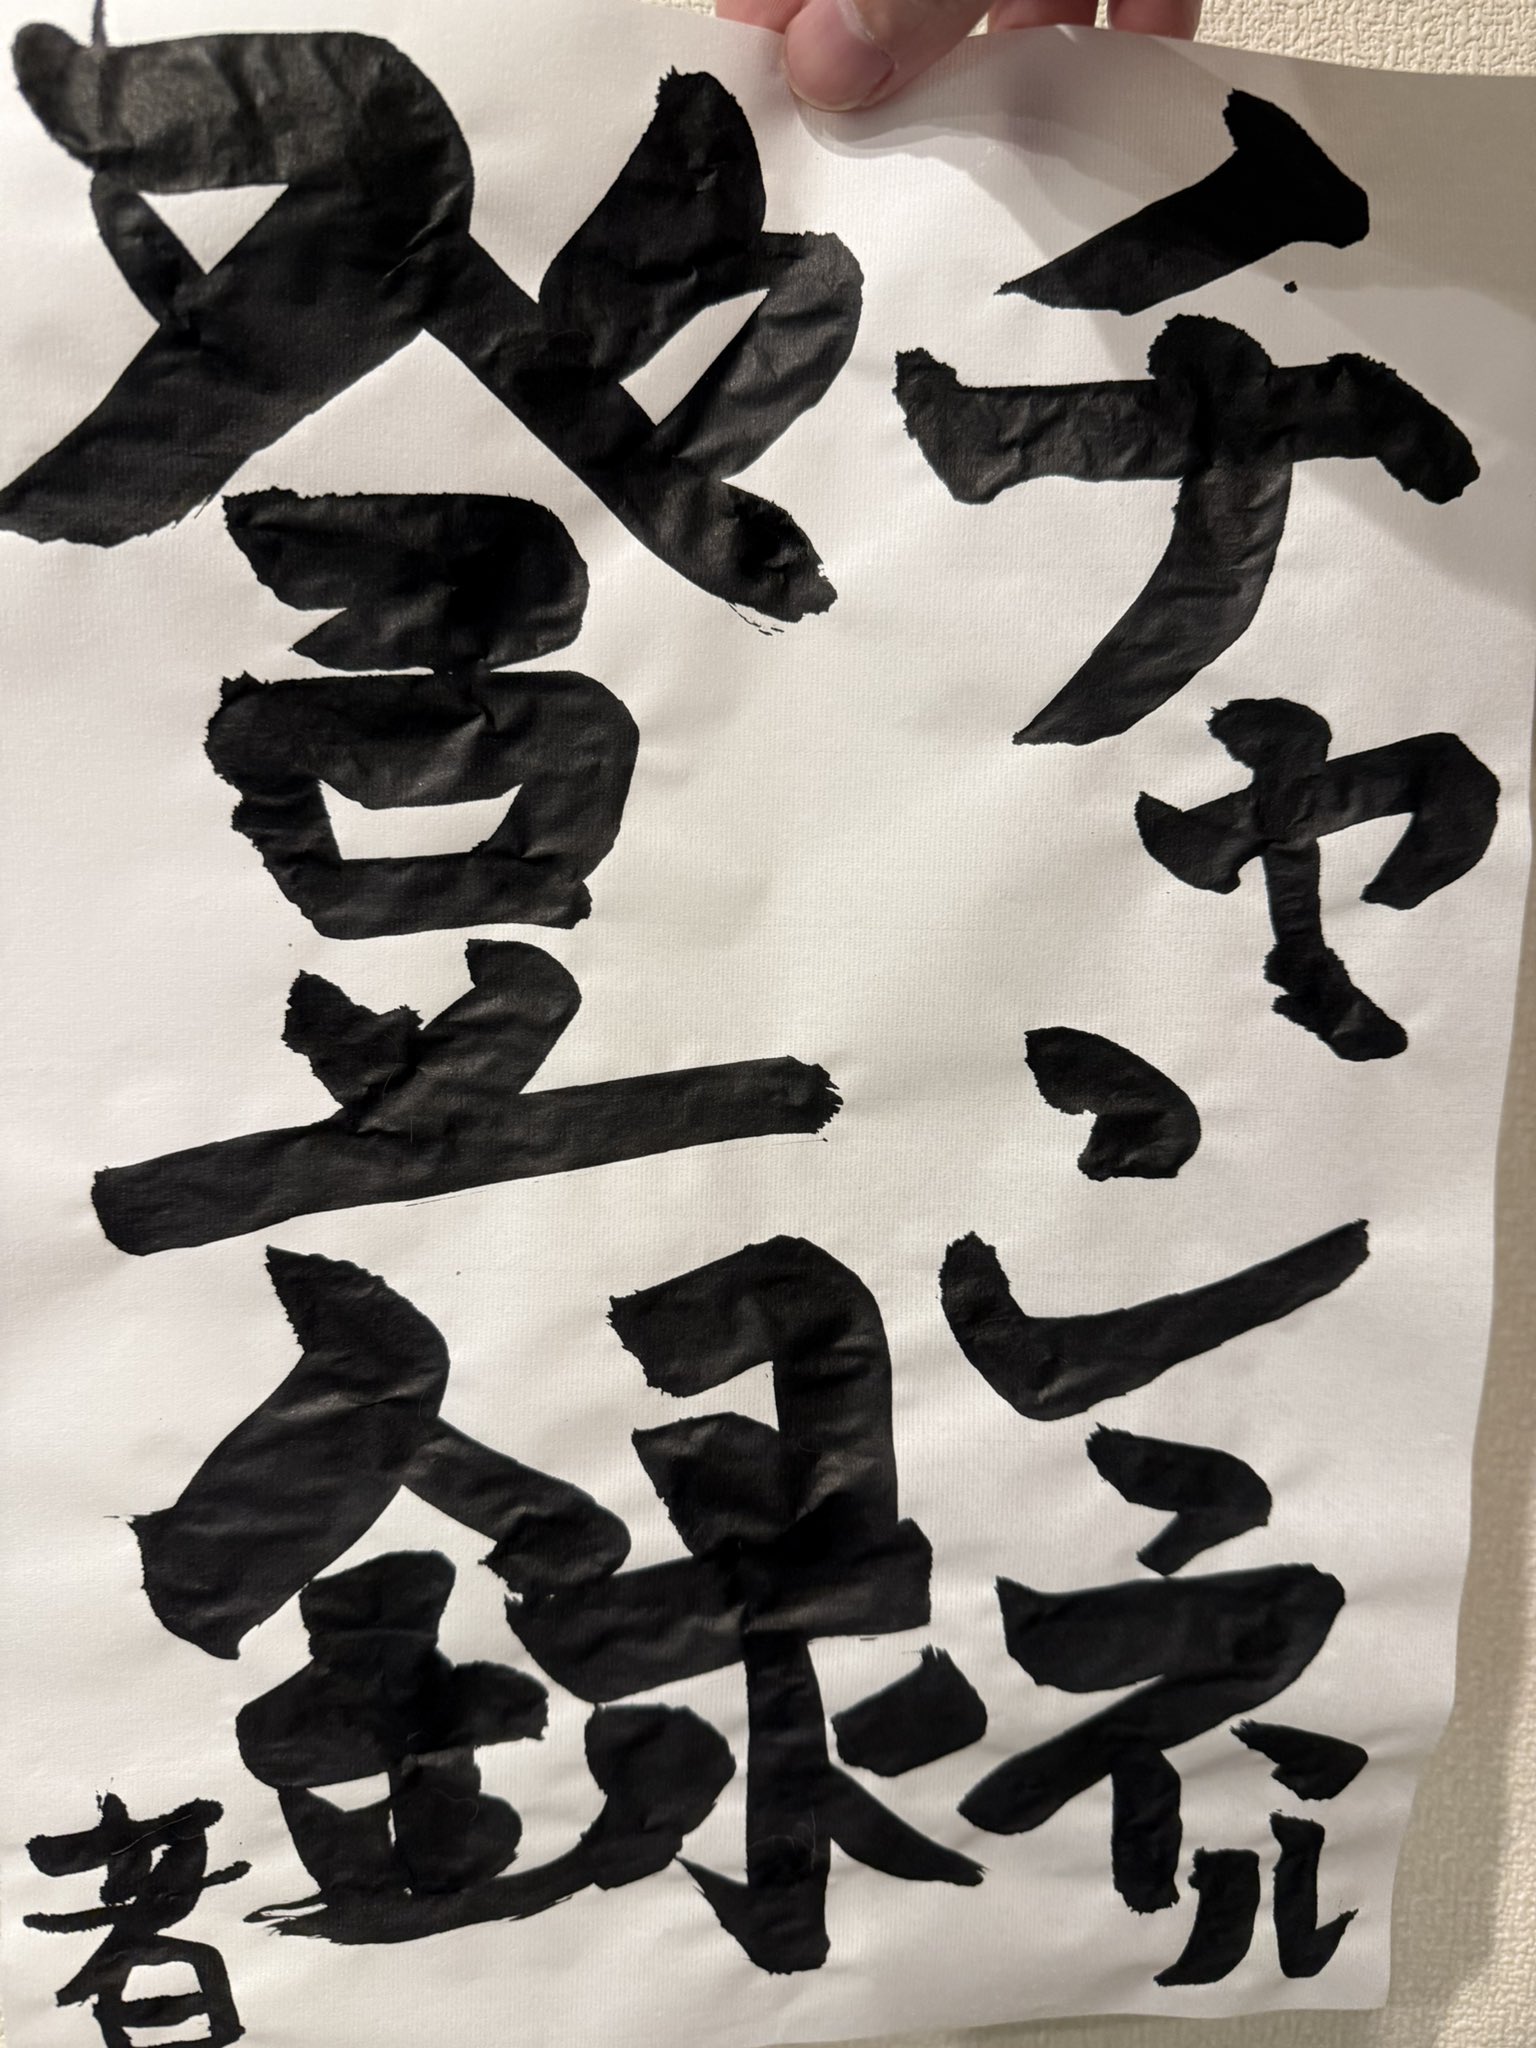 チャンネル
登録者